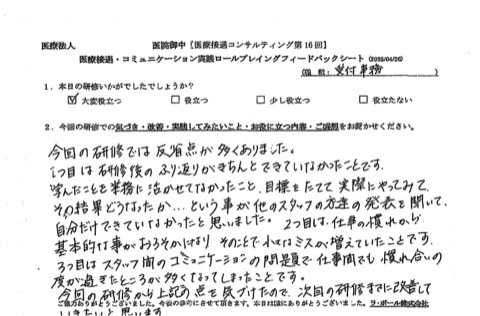 医療法人 医院御中【医療接遇コンサルティング第16回】
医療接遇・コミュニケーション実践ロールプレイングフィードバックシート (2025/04/26)
(職種:受付事務)
1.本日の研修いかがでしたでしょうか?
☑大変役立つ □役立つ □少し役立つ □役立たない
2.今回の研修での気づき・改善・実践してみたいこと・お役に立つ内容・ご感想をお聞かせください。
今回の研修では反省点が多くありました。
1つ目は研修後のふり返りがきちんとできていなかったことです。
学んだことを業務に活かせてなかったこと、目標をたてて実際にやってみて、
その結果どうなったか…という事が他のスタッフの方達の発表を聞いて、
自分だけできていなかったと思いました。2つ目は、仕事の慣れから
基本的な事がおろそかになり そのことで小さなミスが増えていたことです。
3つ目はスタッフ間のコミュニケーションの問題で仕事間でも慣れ合いの
度が過ぎたところが多くなってしまったことです。
今回の研修から上記の点を気づけたので、次回の研修までに改善して
いきたいと思います
ご協力ありがとうございました。今後の参考にさせて頂きます。本日は誠にありがとうございました。 ラ・ポール株式会社